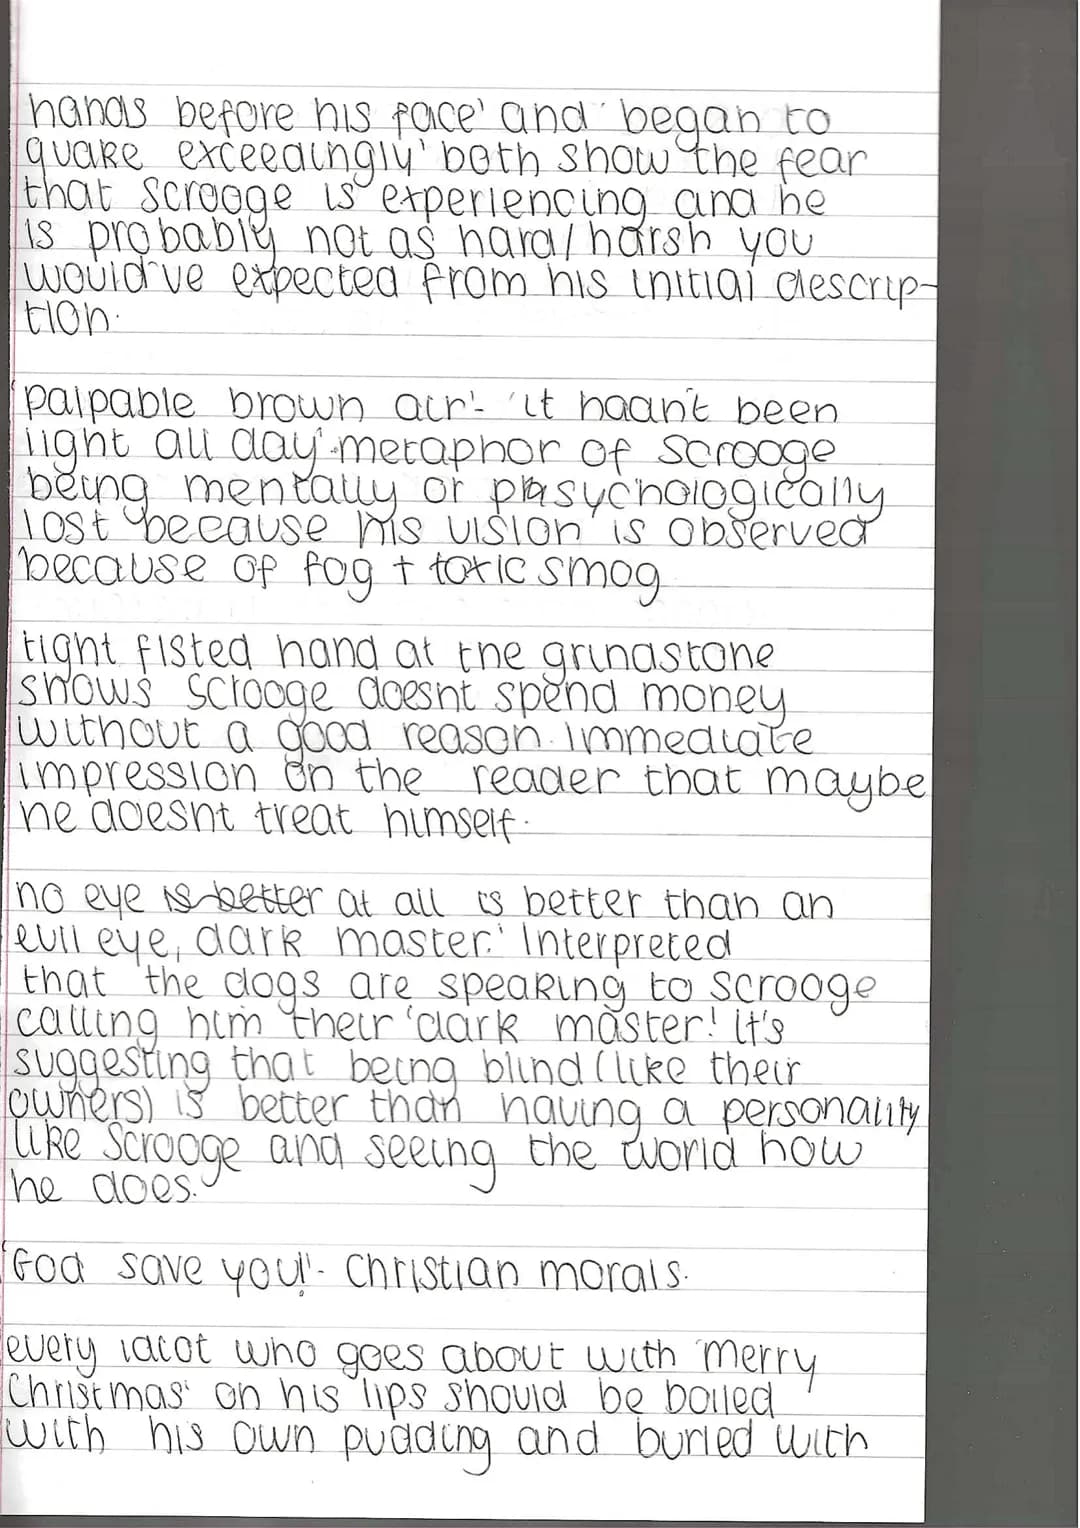 hands before his face' and 'began to
quake exceedingly' both show the fear
that Scrooge is experiencing and he
is probably not as hard/harsh you
would've expected from his initial descrip-
tion.
'palpable brown air'- 'it hadn't been
light all day'-metaphor of Scrooge
being mentally or psychologically
lost because his vision is observed
because of fog + toxic smog
tight fisted hand at the grindstone
shows Scrooge doesnt spend money
without a good reason. Immediate
impression on the reader that maybe
he doesnt treat himself.
no eye is better at all is better than an
evil eye, dark master.' Interpreted
that the dogs are speaking to Scrooge
calling him their 'dark master! It's
suggesting that being blind (like their
owners) is better than having a personality
like Scrooge and seeing the world how
he does.
'God save you!'- Christian morals.
every idiot who goes about with 'merry
Christmas' on his lips should be boiled
with his own pudding and buried with